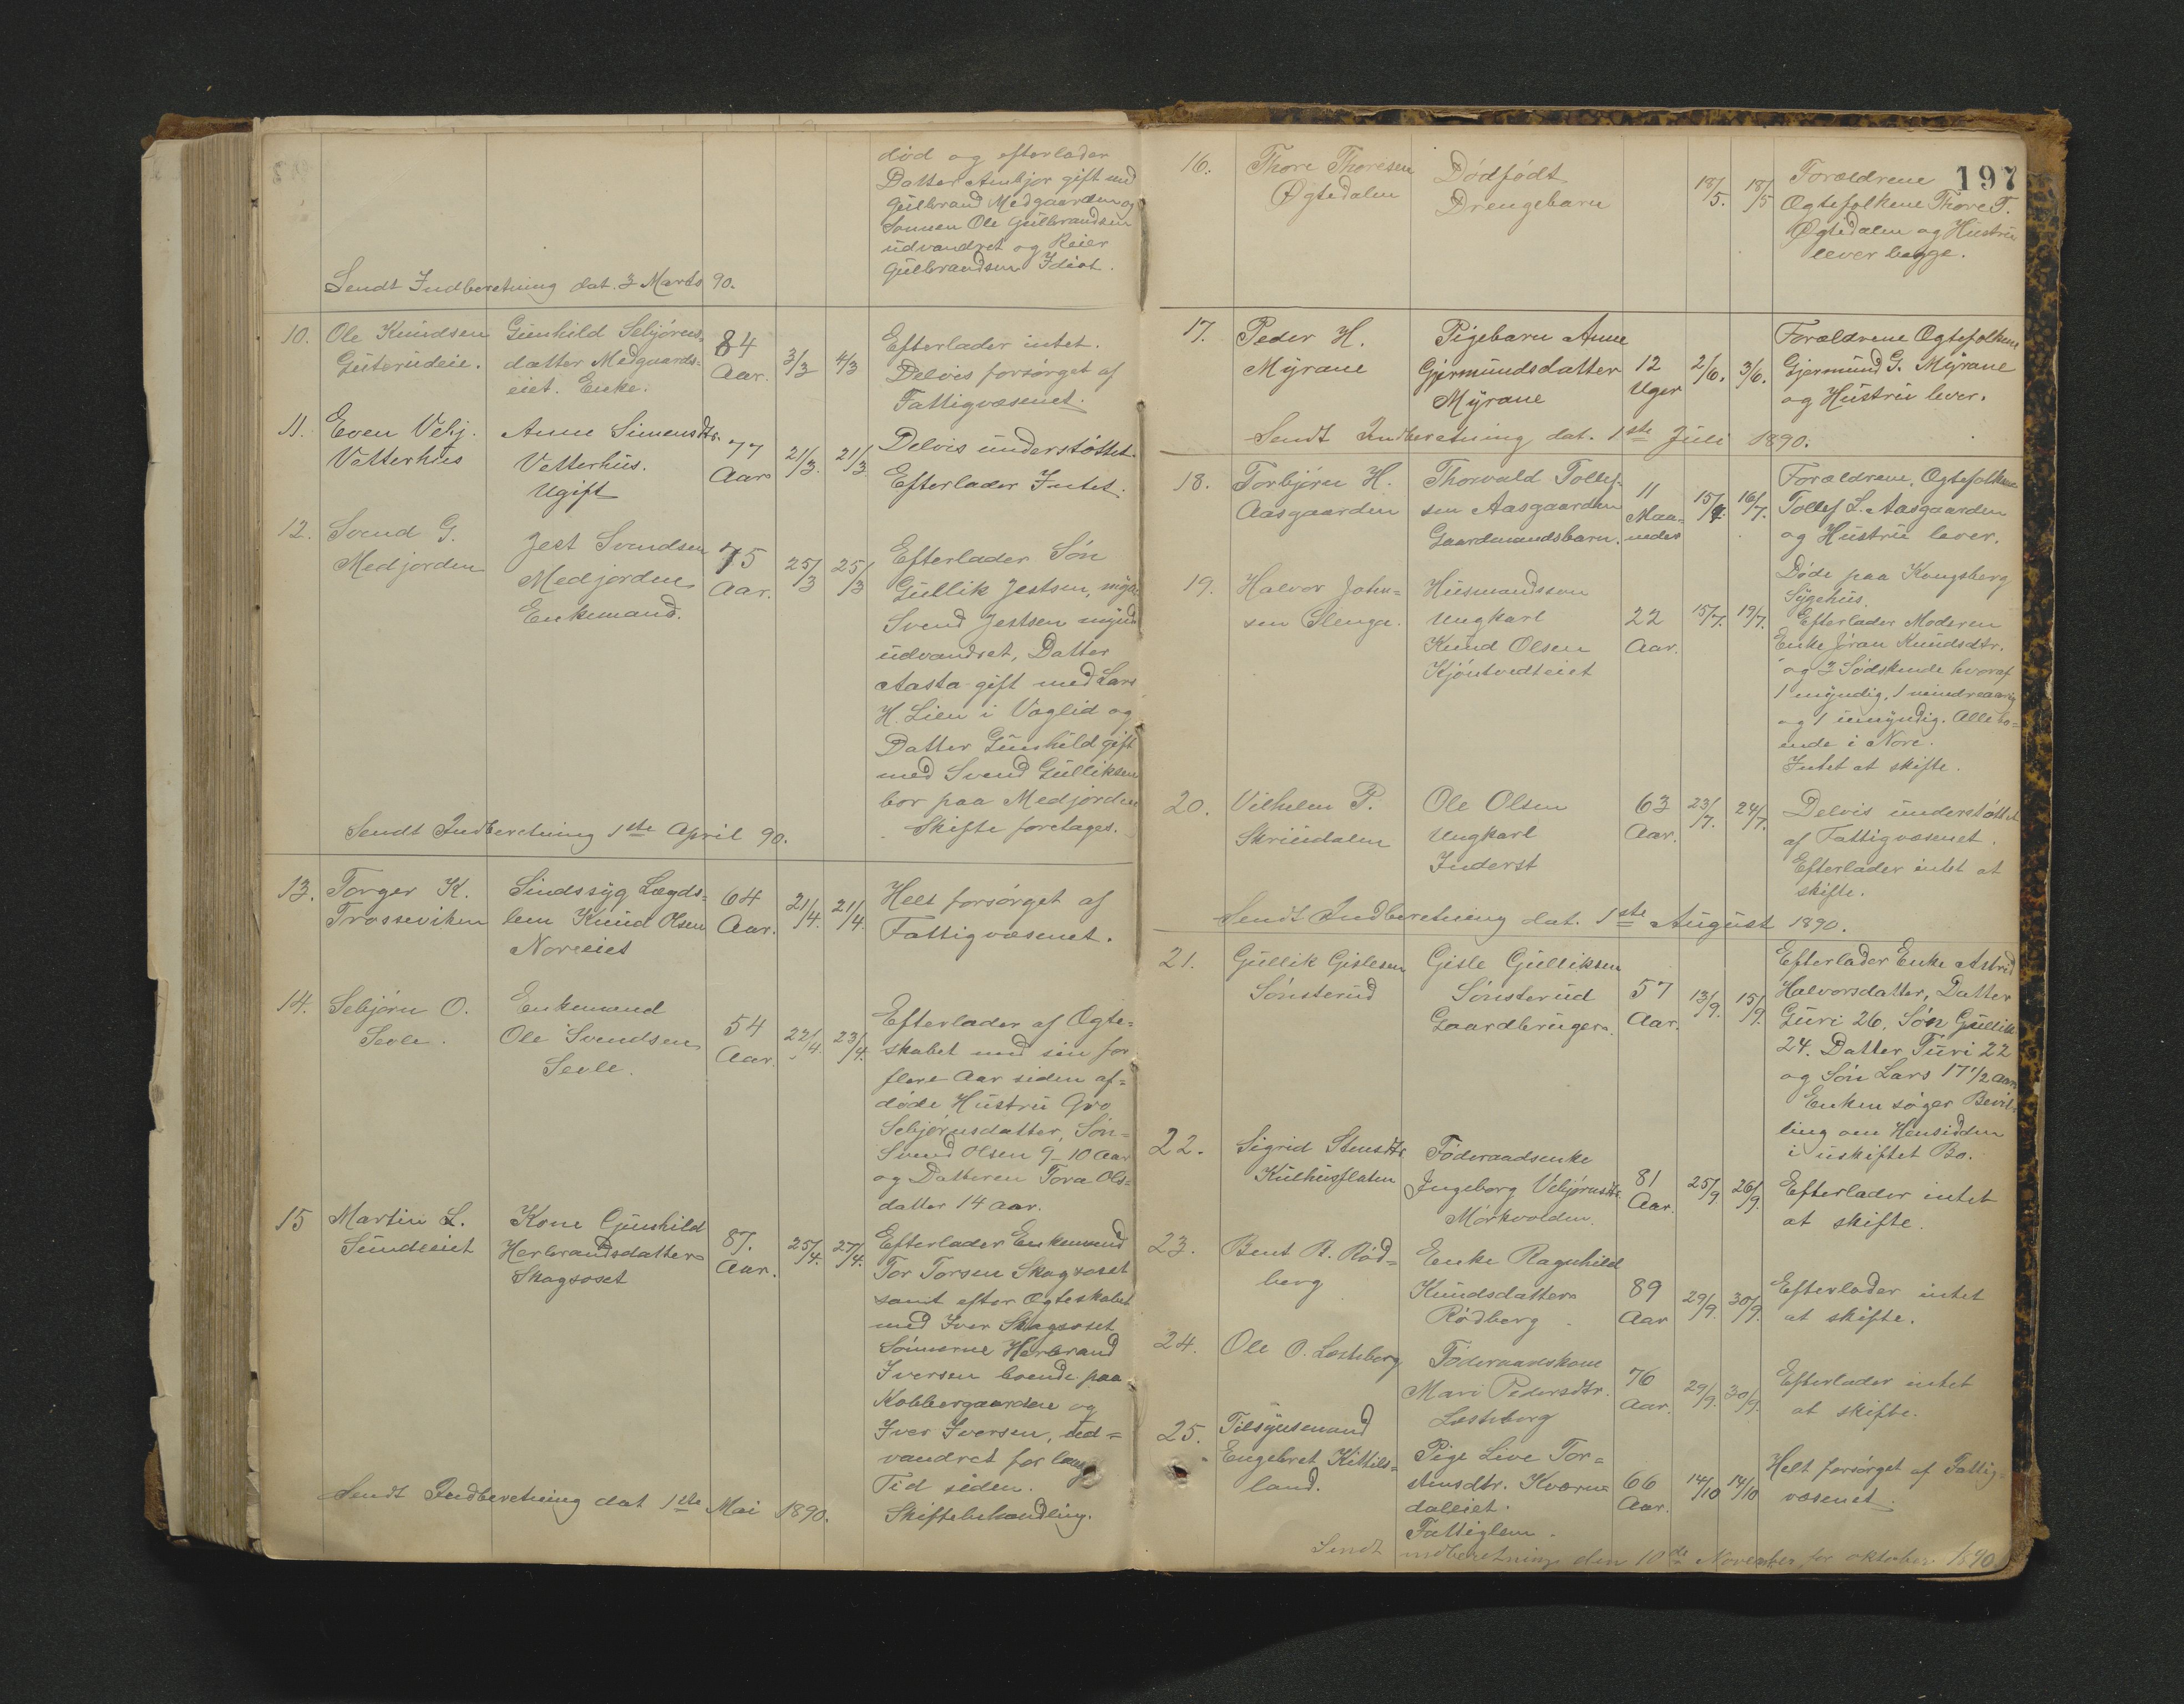 død og efterlader
Datter Ambjør gift med
Gulbrand Medgaarden og
Sønnen Ole Gulbrandsen
udvandret og Reier
Gulbrandsen Idiot.
Sendt Indberetning dat. 3 Marts 90.
10. Ole Knudsen Gunhild Sebjørns- 84 3/3 4/3 Efterlader intet.
Guterudeie. datter Medgaards- Aar. Delvis forsørget af
eiet. Enke. Fattigvæsenet.
11. Even Vebj. Anne Simensdtr. 77 21/3. 21/3 Delvis understøttet.
Vetterhus Vetterhus. Aar Efterlader Intet.
Ugift
12. Svend G. Jest Svendsen 75 25/3 25/3 Efterlader Søn
Medjorden Medjorden Aar. Gullik Jestsen, myn
Enkemand. Svend Jestsen mynd
udvandret, Datter
Aasta gift med Lars
H. Lien i Væglid og
Datter Gunhild gift
med Svend Gulliksen
bor paa Medjorden
Skifte foretages.
Sendt Indberetning 1ste April 90.
13. Torger K. Sindssyg Lægds- 64 21/4. 21/4. Helt forsørget af
Trosseviken lem Knud Olsen Aar. Fattigvæsenet.
Noreeiet
14. Sebjørn O. Enkemand 54 22/4. 23/4. Efterlader af Ægte-
Sevle. Ole Svendsen Aar. skabet med sin for
Sevle. flere Aar siden af-
døde Hustru Gro
Sebjørnsdatter, Søn-
Svend Olsen 9-10 Aar
og Datteren Tora Ols-
datter 14 Aar.
15 Martin L. Kone Gunhild 87. 25/4. 27/4. Efterlader Enkemand
Sundeeiet Herbrandsdatter Aar. Tor Torsen Skagsoset
Skagsoset samt efter Ægteskabet
med Iver Skagsoset
Sønnerne Herbrand
Iversen boende paa
Kobbergaarden og
Iver Iversen, ud-
vandret for lang
Tid siden.
Skiftebehandling.
Sendt Indberetning dat 1ste Mai 1890.
197
16. Thore Thoresen Dødfødt 18/5. 18/5 Forældrene
Øgtedalen Drengebarn Ægtefolkene Thore T.
Øgtedalen og Hustru
lever begge.
17. Peder H. Pigebarn Anne 12 2/6. 3/6. Forældrene Ægtefolkene
Myrane Gjermundsdatter Uger Gjermund G. Myrane
Myrane og Hustru lever.
Sendt Indberetning dat. 1ste Juli 1890.
18. Torbjørn H. Thorvald Tollef- 11 15/7. 16/7. Forældrene, Ægtefolkene
Aasgaarden sen Aasgaarden Maa- Tollef L. Aasgaarden
Gaardmandsbarn. neder og Hustru lever.
19. Halvor John- Husmandssøn 22 15/7. 19/7. Døde paa Kongsberg
sen Slenga. Ungkarl Aar. Sygehus.
Knud Olsen Efterlader Moderen
Kjøntvedteiet Enke Jøran Knudsdtr.
og 3 Sødskende hvoraf
1 myndig, 1 mindreaarig
og 1 umyndig. Alle bo-
ende i Nore.
Intet at skifte.
20. Vilhelm P. Ole Olsen 63 23/7. 24/7. Delvis understøttet
Skriudalen Ungkarl Aar. af Fattigvæsenet.
Inderst Efterlader intet at
skifte.
Sendt Indberetning dat. 1ste August 1890.
21. Gullik Gislesen Gisle Gulliksen 57 13/9. 15/9. Efterlader Enke Astrid
Sønsterud Sønsterud Aar. Halvorsdatter, Datter
Gaardbruger. Guri 26, Søn Gullik
24. Datter Turi 22
og Søn Lars 17 1/2 Aar
Enken søger Bevil-
ling om Hensidden
i uskiftet Bo.
22. Sigrid Stensdtr. Føderaadsenke 81 25/9 26/9. Efterlader intet
Kulhusflaten Ingeborg Vebjørnsdtr. Aar. at skifte.
Mørkvolden.
23. Bent R. Rød- Enke Ragnhild 89 29/9. 30/9. Efterlader intet
berg Knudsdatter Aar at skifte.
Rødberg
24. Ole O. Losteborg Føderaadskone 76 29/9. 30/9. Efterlader intet
Mari Pedersdtr. Aar. at skifte.
Losteborg
25. Tilsynsmand Pige Live Tor- 66 14/10 14/10 Helt forsørget af Fattig-
Engebret Kittils- stensdtr. Kværn- Aar. væsenet.
land. daleiet.
Fattiglem.
Sendt indberetning den 10de November for oktober 1890.